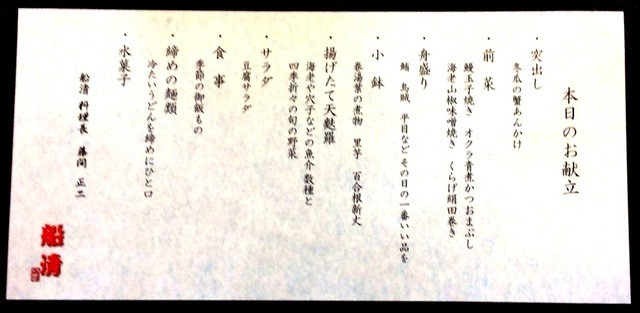 本日のお献立
・突出し
冬瓜の蟹あんかけ
・前菜
鰻玉子焼き オクラ青煮かつおまぶし
海老山椒味噌焼き くらげ絹田巻き
・舟盛り
鮪 烏賊 平目など その日の一番いい品を
・小鉢
巻湯葉の煮物 里芋 百合根新丈
・揚げたて天麩羅
海老や穴子などの魚介数種と
四季折々の旬の野菜
・サラダ
豆腐サラダ
・食事
季節の御飯もの
・締めの麺類
冷たいうどんを締めにひと口
・水菓子
船清 料理長 藤間 正二
船清